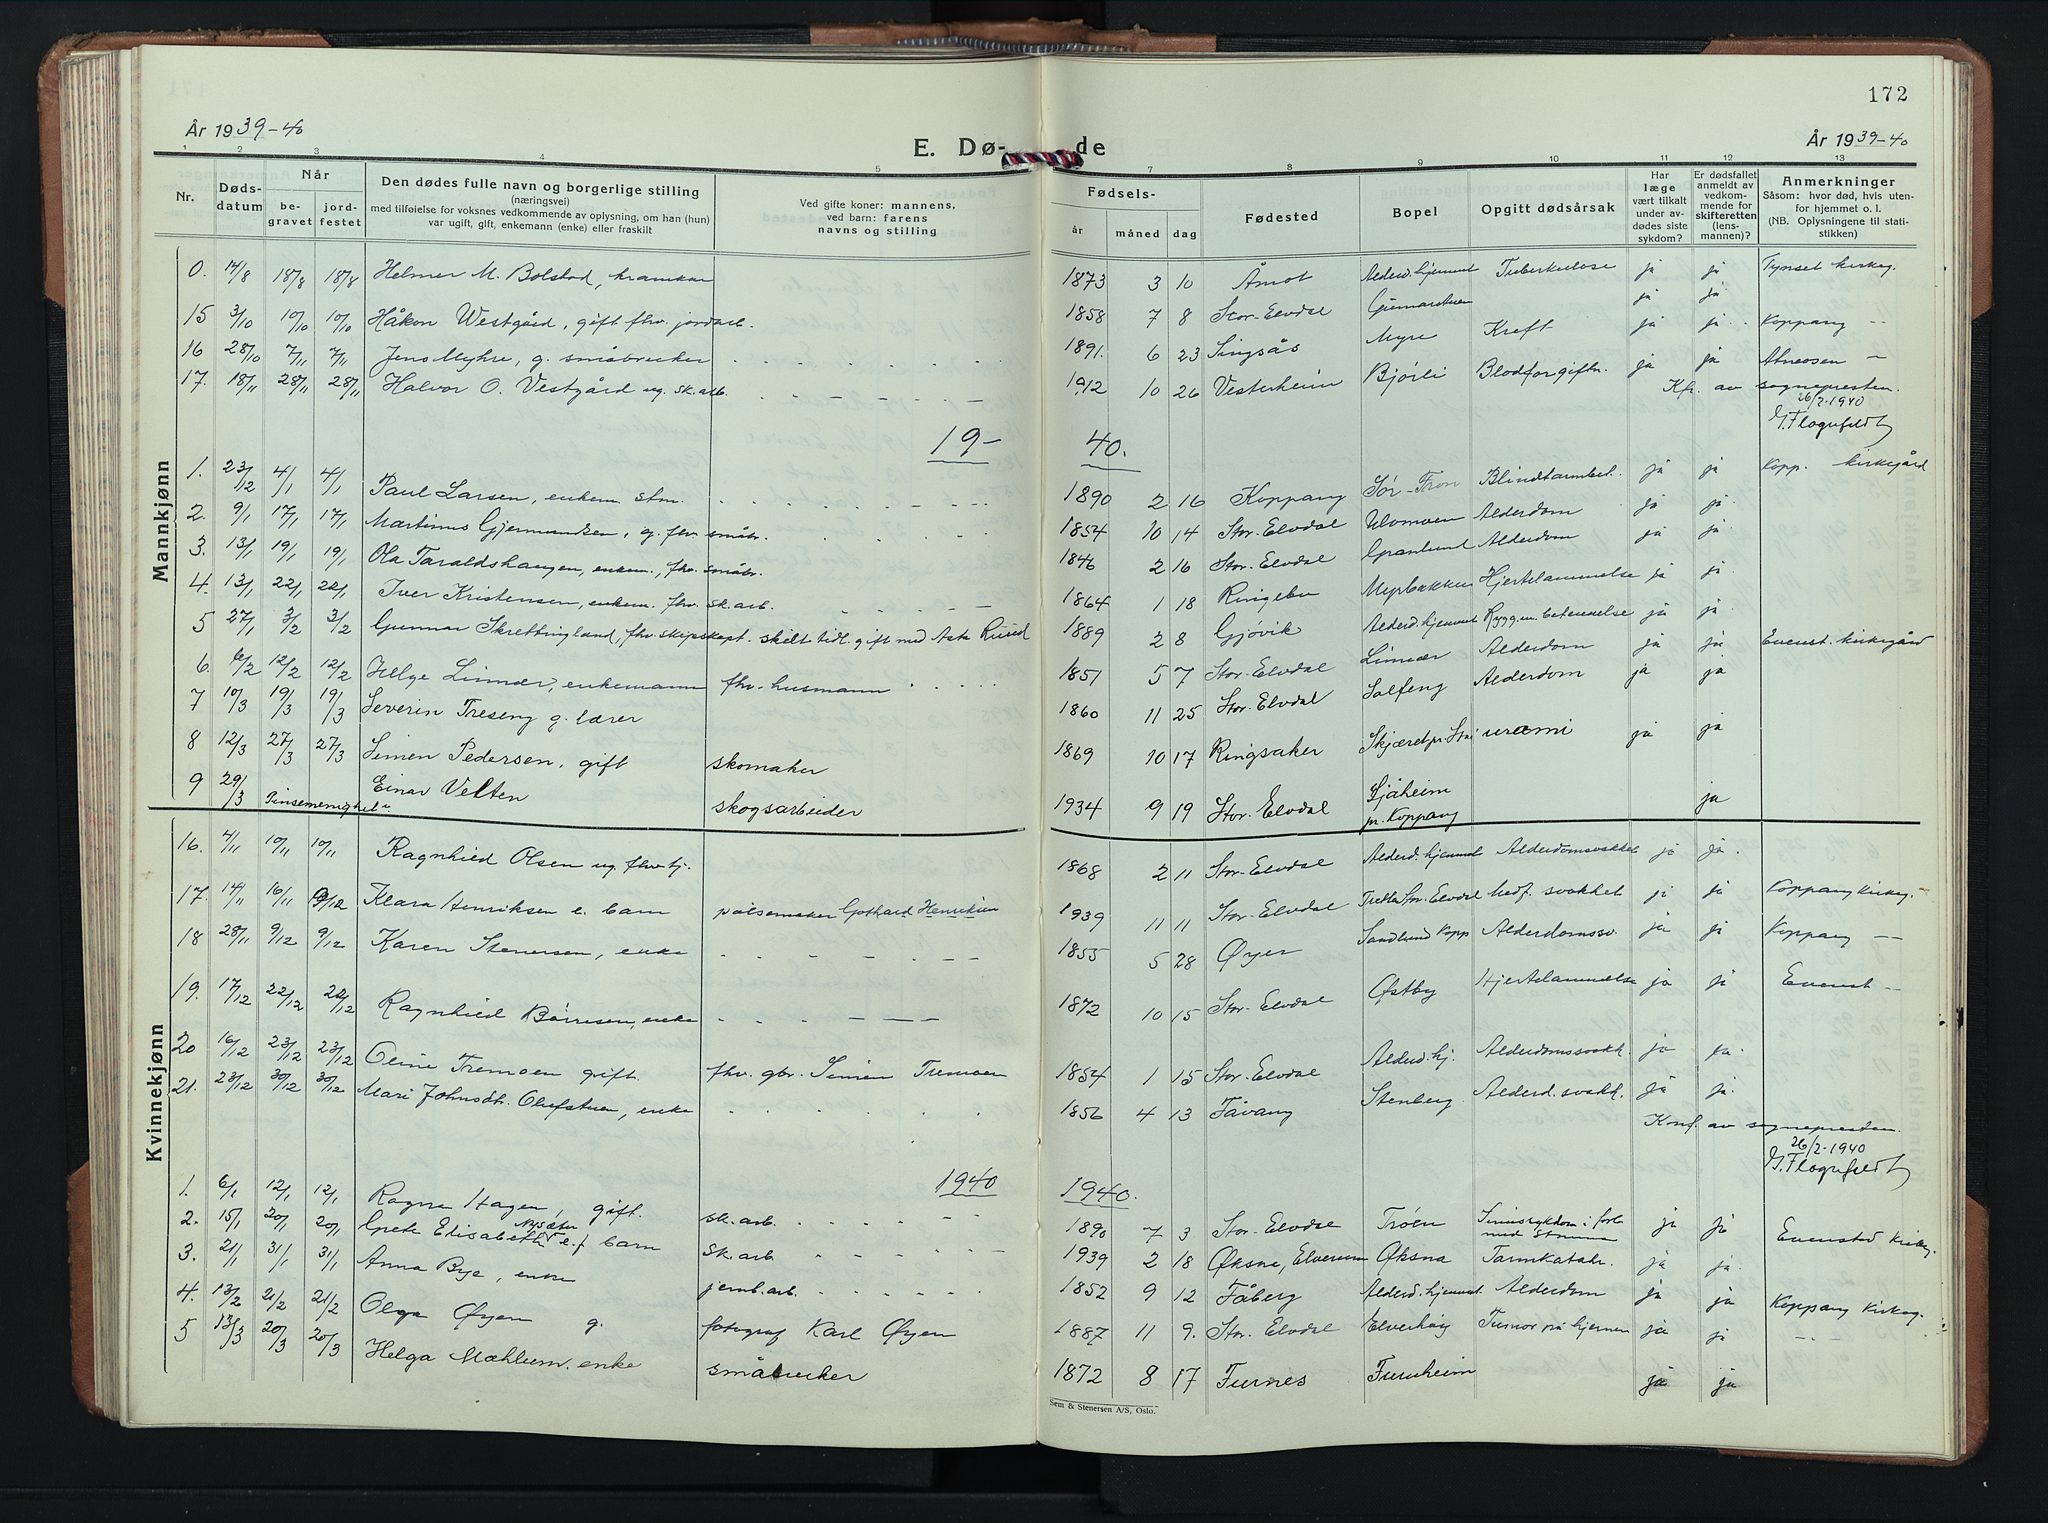 172
År 1939-40
E. Dø-
de
År 1939-40
1 2 3 4 5 7 8 9 10 11 12 13
Nr.
Døds-
datum
Når
be-
gravet
jord-
festet
Den dødes fulle navn og borgerlige stilling
(næringsvei)
med tilføielse for voksnes vedkommende av oplysning, om han (hun)
var ugift, gift, enkemann (enke) eller fraskilt
Ved gifte koner: mannens,
ved barn: farens
navns og stilling
Fødsels-
år måned dag
Fødested
Bopel
Opgitt dødsårsak
Har
læge
vært tilkalt
under av-
dødes siste
sykdom?
Er dødsfallet
anmeldt av
vedkom-
mende for
skifteretten
(lens-
mannen)?
Anmerkninger
Såsom: hvor død, hvis uten-
for hjemmet o. l.
(NB. Oplysningene til stati-
stikken)
Mannkjønn
0. 14/8 18/8 18/8 Helmer M. Bolstad, kramkar 1873 3 10 Åmot Alderd.hjemmet Tuberkulose ja ja Tynset kirkeg.
15 3/10 10/10 10/10 Håkon Westgård, gift fhv. jordarb. 1858 7 8 Stor-Elvdal ja ja
16 28/10 7/11 7/11 Jens Myhre, g. småbruker 1891. 6 23 Singsås Myre Kreft ja ja Koppang -
17. 18/11 28/11 28/11 Halvor O. Vestgård ug. sk.arb. 1912 10 26 Vesterheim Bjørli Blodforgiftn. ja ja Atneosen -
Kfr. av sognepresten.
26/2-1940
G. Flognfeldt
19- 40.
1. 23/12 4/1 4/1 Paul Larsen, enkem. stm. 1890 2 16 Koppang Sør-Fron Blindtarmbet. ja ja Kopp. kirkegård
2. 9/1 17/1 17/1 Martinus Gjermundsen, g. fhv. småbr. 1854 10 14 Stor-Elvdal Ulvmoen Alderdom ja ja
3. 13/1 19/1 19/1 Ola Taraldshaugen, enkem., fhv. småbr. 1846 2 16 Stor-Elvdal Granlund Alderdom ja ja
4. 13/1 22/1 22/1 Iver Kristensen, enkem. fhv. sk.arb. 1864 1 18 Ringebu Myrbakken Hjertelammelse ja ja
5 27/1 3/2 3/2 Gunnar Skrettingland, fhv. skipskapt. skilt tidl. gift med Asta Rusud 1889 2 8 Gjøvik Alderd.hjemmet Rygg.m. betennelse ja ja
6. 6/2 12/2 12/2 Helge Linnær, enkemann fhv. husmann 1851 5 7 Stor-Elvdal Linnær Alderdom ja ja Evenst. kirkegård
7 10/3 19/3 19/3 Severin Treseng g. lærer 1860 11 25 Stor-Elvdal Solfeng Alderdom ja ja
8 12/3 27/3 27/3 Simen Pedersen, gift skomaker 1869 10 17 Ringsaker uræmi ja ja
9 29/3 Pinsemenighet Einar Velten skogsarbeider 1934 9 19 Stor-Elvdal Sjåheim pr. Koppang ja
Kvinnekjønn
16. 4/11 10/11 10/11 Ragnhild Olsen ug. fhv. tj. 1868 2 11 Stor-Elvdal Alderd.hjemmet Alderdomssvakhet ja ja.
17. 14/11 16/11 9/12 Klara Henriksen e. barn pølsemaker Gothard Henriksen 1939 11 11 Stor-Elvdal Medf. svakhet ja ja Koppang kirkeg.
18 28/11 9/12 9/12 Karen Stenersen, enke 1855 5 28 Øyer Sandlund Kopp Alderdomssv. ja ja Koppang -
19. 17/12 22/12 22/12 Ragnhild Børresen, enke 1872 10 15 Stor-Elvdal Østby Hjertelammelse ja ja Evenst -
20 16/12 23/12 23/12 Oline Tremoen gift. fhv. gbr. Simen Tremoen 1854 1 15 Stor-Elvdal Alderd.hj. Alderdomssvakh. ja ja.
21. 23/12 30/12 30/12 Mari Johnsdtr. Olufstuen, enke 1856 4 13 Fåvang Stenberg Alderd. svakh. ja ja.
Konf. av sognepresten.
26/2-1940
G. Flognfeldt
1940 1940.
1. 6/1 12/1 12/1 Ragna Hagen, gift. sk.arb. 1890 7 3 Stor-Elvdal Trøen Sinnssykdom i forb. med Struma ja ja Evenstad kirkeg.
2. 15/1 20/1 20/1 Grete Elisabeth Nysæter e. barn sk.arb 1939 2 18 Øksna, Elverum Øksna Tarmkatahr. ja ja.
3. 21/1 31/1 31/1 Anna Bye, enke jernb.arb. 1852 9 12 Fåberg Alderd.hjemmet Alderdom ja ja
4. 13/2 21/2 21/2 Olga Øyen g. fotograf Karl Øyen 1887 11 9. Stor-Elvdal Elverhøig Tumor på hjernen ja ja Koppang kirkeg.
5 13/3 20/3 20/3 Helga Mæhlum. enke småbruker 1872 8 17 Furnes Furuheim ja ja
Sem & Stenersen A/S, Oslo.